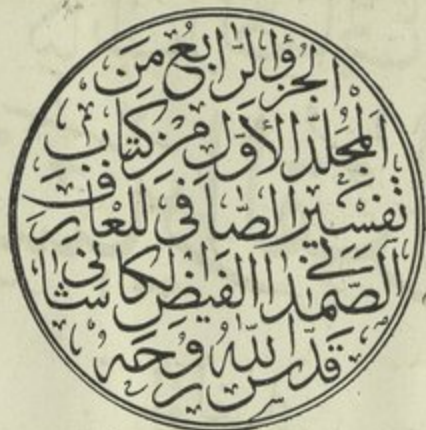 الجُزؤ الرَّابِعُ مِنَ
المُجَلَّدِ الأَوَّلِ مِنْ كِتَابِ
تَفْسِيرِ الصَّافِي لِلْعَارِفِ
الصَّمَدَانِي الفَيْضِ الكَاشَانِي
قَدَّسَ اللهُ رُوحَهُ